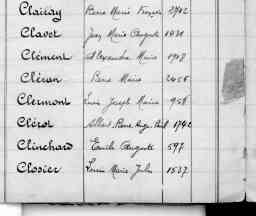 Clairay Pierre Marie François 2702
Clavet Jean Marie Auguste 1431
Clément Alexandre Marie 1907
Cléran Pierre Marie 2458
Clermont Louis Joseph Marie 958
Clérot Albert Pierre Ange Paul 1742
Clinchard Emile Auguste 597
Closier Louis Marie Jules 1537